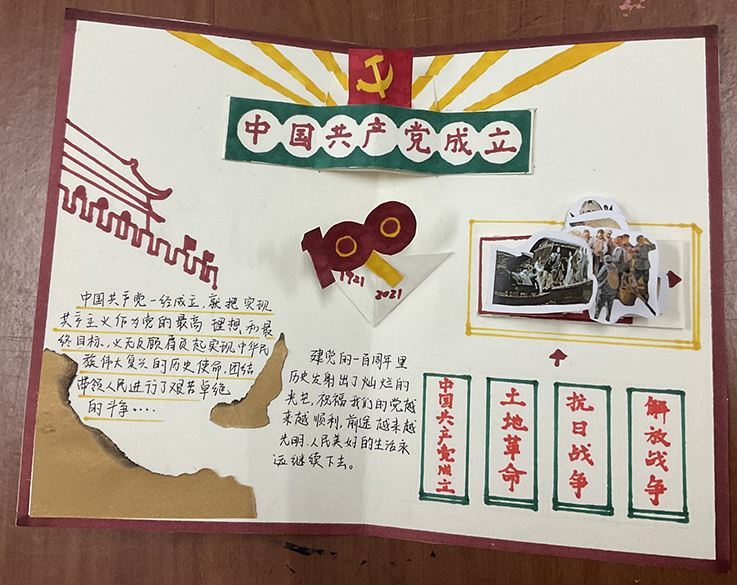 中国共产党成立
100
1921
2021
中国共产党一经成立,就把实现
共产主义作为党的最高理想和最
终目标,义无反顾肩负起实现中华民
族伟大复兴的历史使命,团结
带领人民进行了艰苦卓绝
的斗争....
建党的一百周年里
历史发射出了灿烂的
光芒,祝福我们的党越
来越顺利,前途越来越
光明,人民美好的生活永
远继续下去。
中国共产党成立
土地革命
抗日战争
解放战争